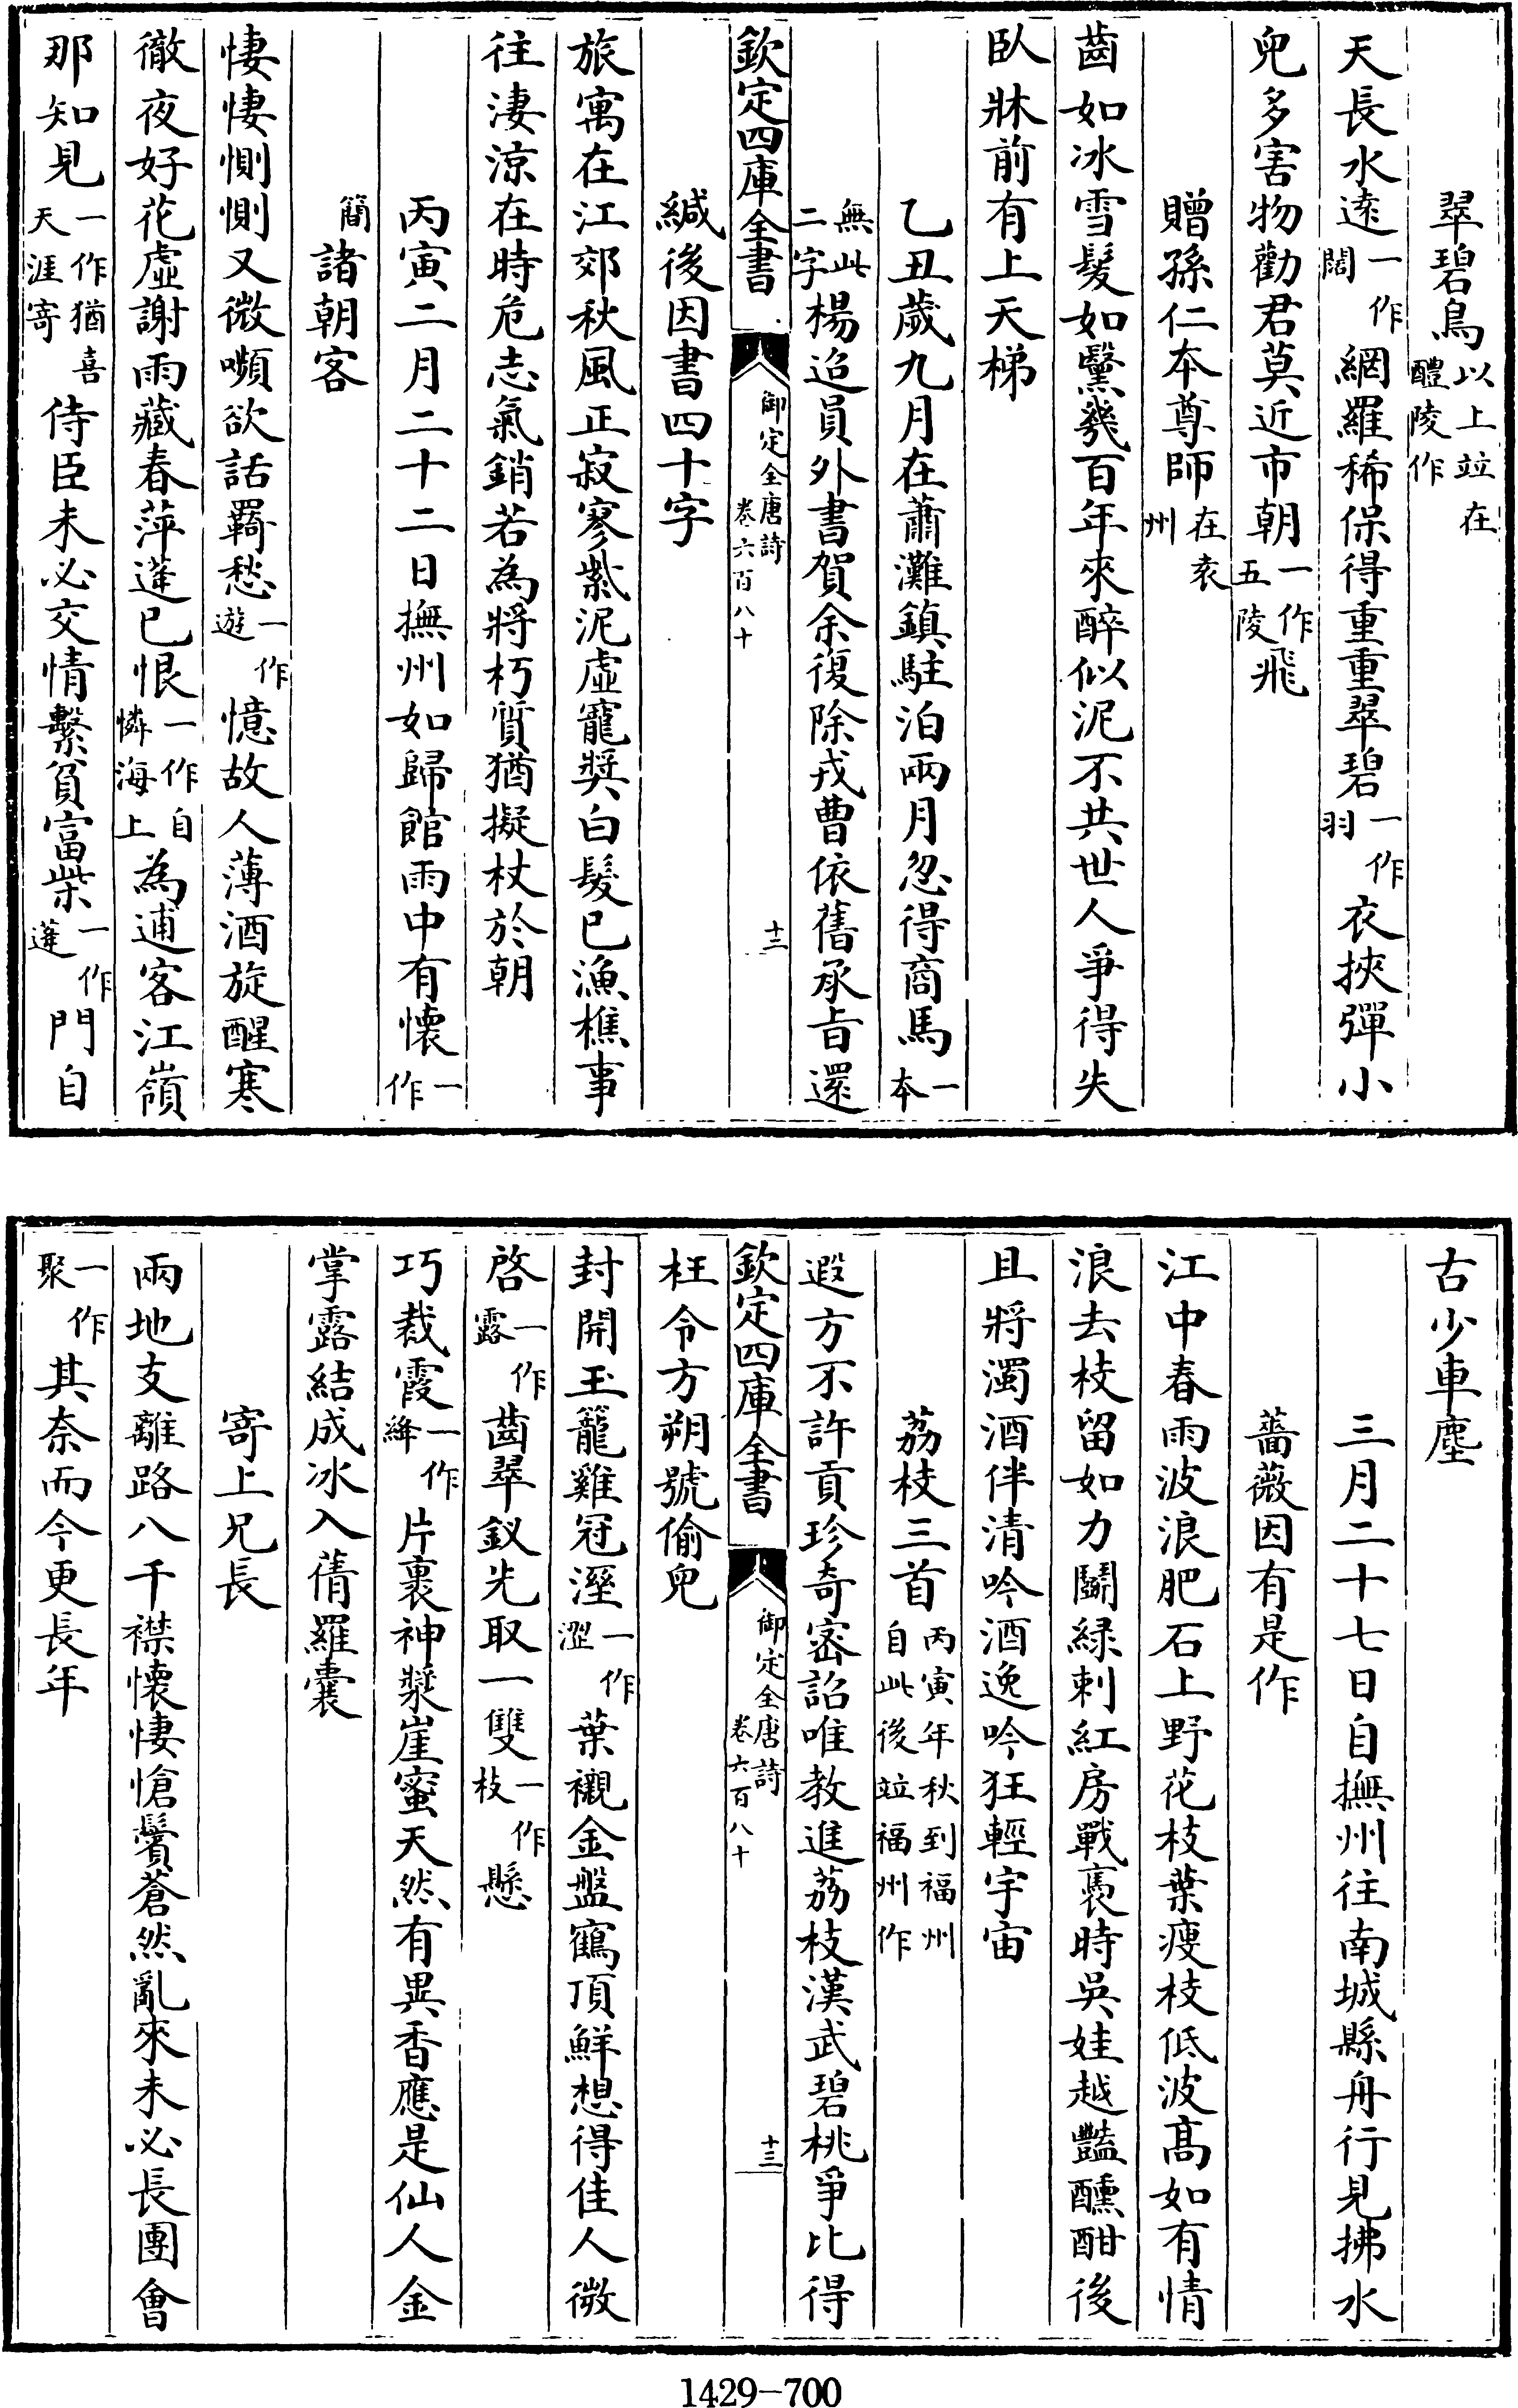 翠碧鳥以上竝在醴陵作
天長水遠一作闊網羅稀保得重重翠碧一作羽衣挾彈小
兒多害物勸君莫近市朝一作五陵飛
贈孫仁本尊師在袁州
齒如冰雪髮如黳幾百年來醉似泥不共世人爭得失
臥牀前有上天梯
乙丑歲九月在蕭灘鎮駐泊兩月忽得商馬一本
無此二字楊迢員外書賀余復除戎曹依舊承旨還
緘後因書四十字
欽定四庫全書
御定全唐詩
卷六百八十
十二
旅寓在江郊秋風正寂寥紫泥虛寵獎白髮已漁樵事
往淒涼在時危志氣銷若為將朽質猶擬杖於朝
丙寅二月二十二日撫州如歸館雨中有懷一作
簡諸朝客
悽悽惻惻又微嚬欲話羇愁一作遊憶故人薄酒旋醒寒
徹夜好花虛謝雨藏春萍蓬已恨一作自憐海上為逋客江嶺
那知見一作猶喜天涯寄侍臣未必交情繫貧富柴一作蓬門自
古少車塵
三月二十七日自撫州往南城縣舟行見拂水
薔薇因有是作
江中春雨波浪肥石上野花枝葉瘦枝低波髙如有情
浪去枝留如力鬭綠刺紅房戰裛時吳娃越豔醺酣後
且將濁酒伴清吟酒逸吟狂輕宇宙
荔枝三首丙寅年秋到福州自此後竝福州作
遐方不許貢珍奇密詔唯教進荔枝漢武碧桃爭比得
枉令方朔號偷兒
欽定四庫全書
御定全唐詩
卷六百八十
十三
封開玉籠雞冠溼一作澀葉襯金盤鶴頂鮮想得佳人微
啓一作露齒翠釵先取一雙一作枝懸
巧裁霞一作絳片裹神漿崖蜜天然有異香應是仙人金
掌露結成冰入蒨羅囊
寄上兄長
兩地支離路八千襟懷悽愴鬢蒼然亂來未必長團會
一作聚其奈而今更長年
1429-700